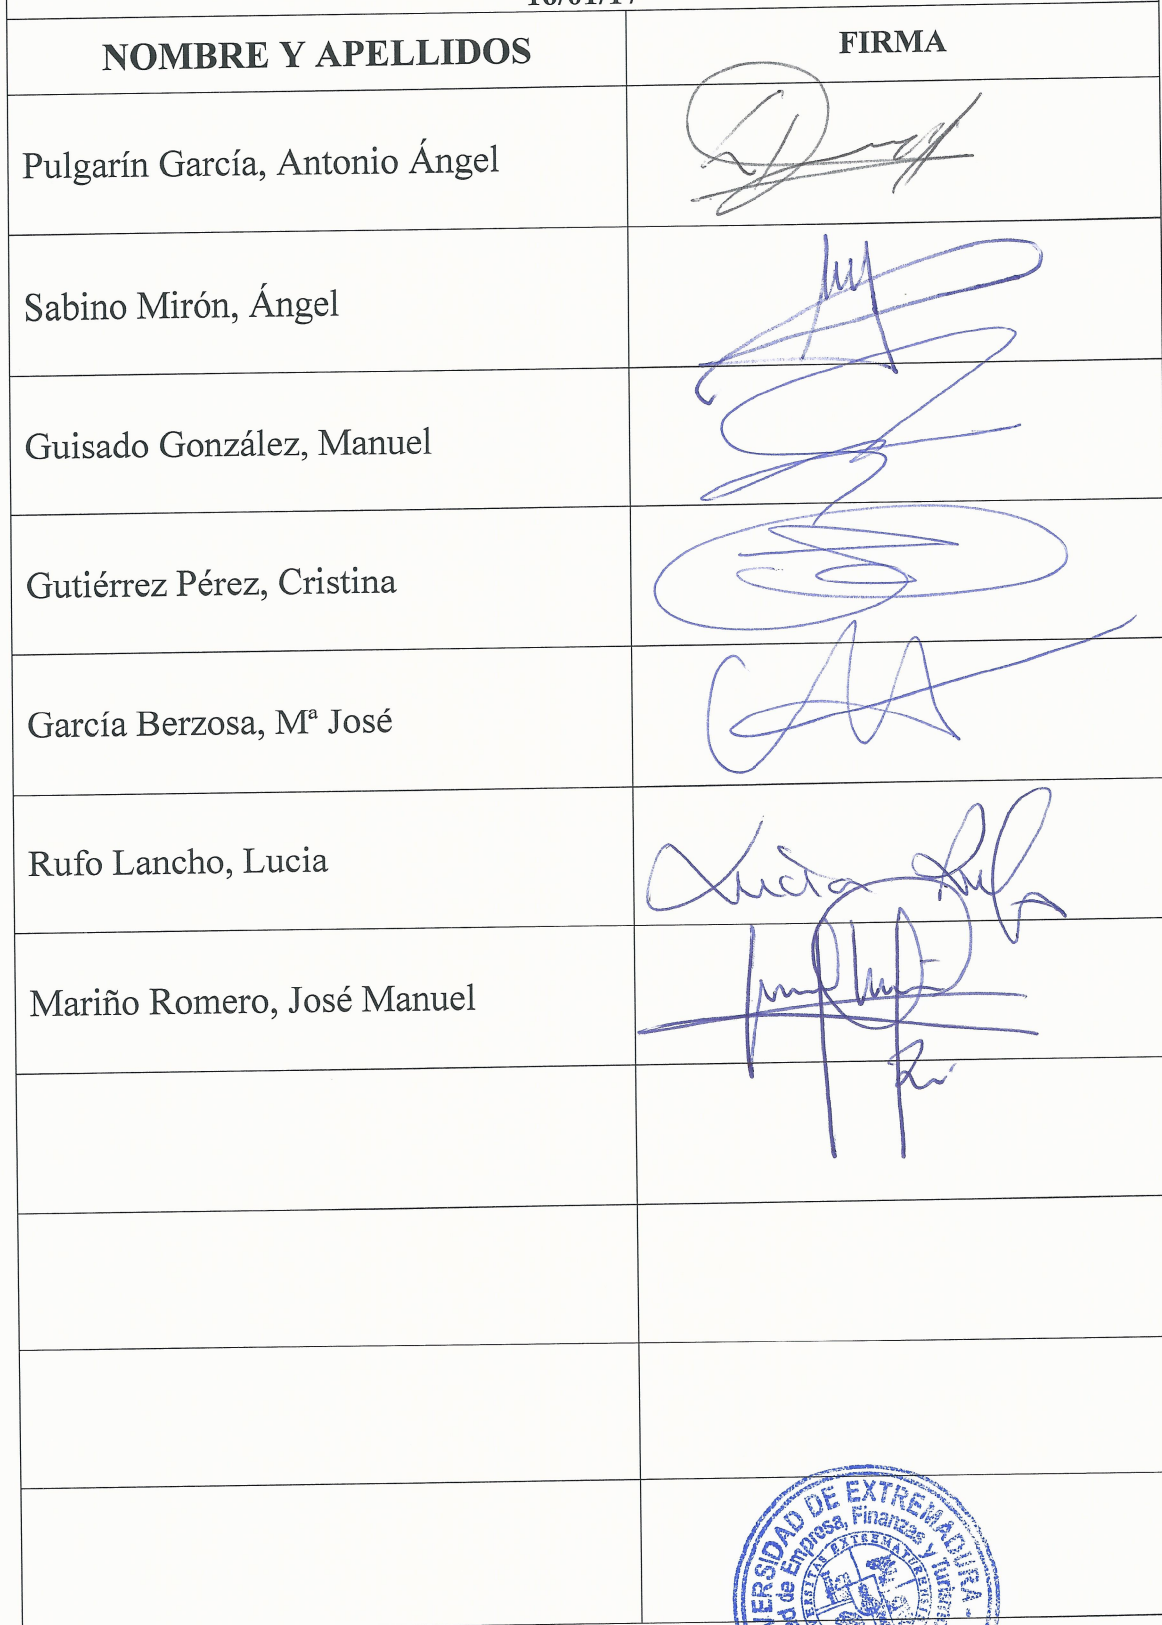 NOMBRE Y APELLIDOS
FIRMA
Pulgarín García, Antonio Ángel
Sabino Mirón, Ángel
Guisado González, Manuel
Gutiérrez Pérez, Cristina
García Berzosa, Mª José
Rufo Lancho, Lucia
Lucía Rufo
Mariño Romero, José Manuel
DE EXTREMADURA -
de Empresa, Finanzas y